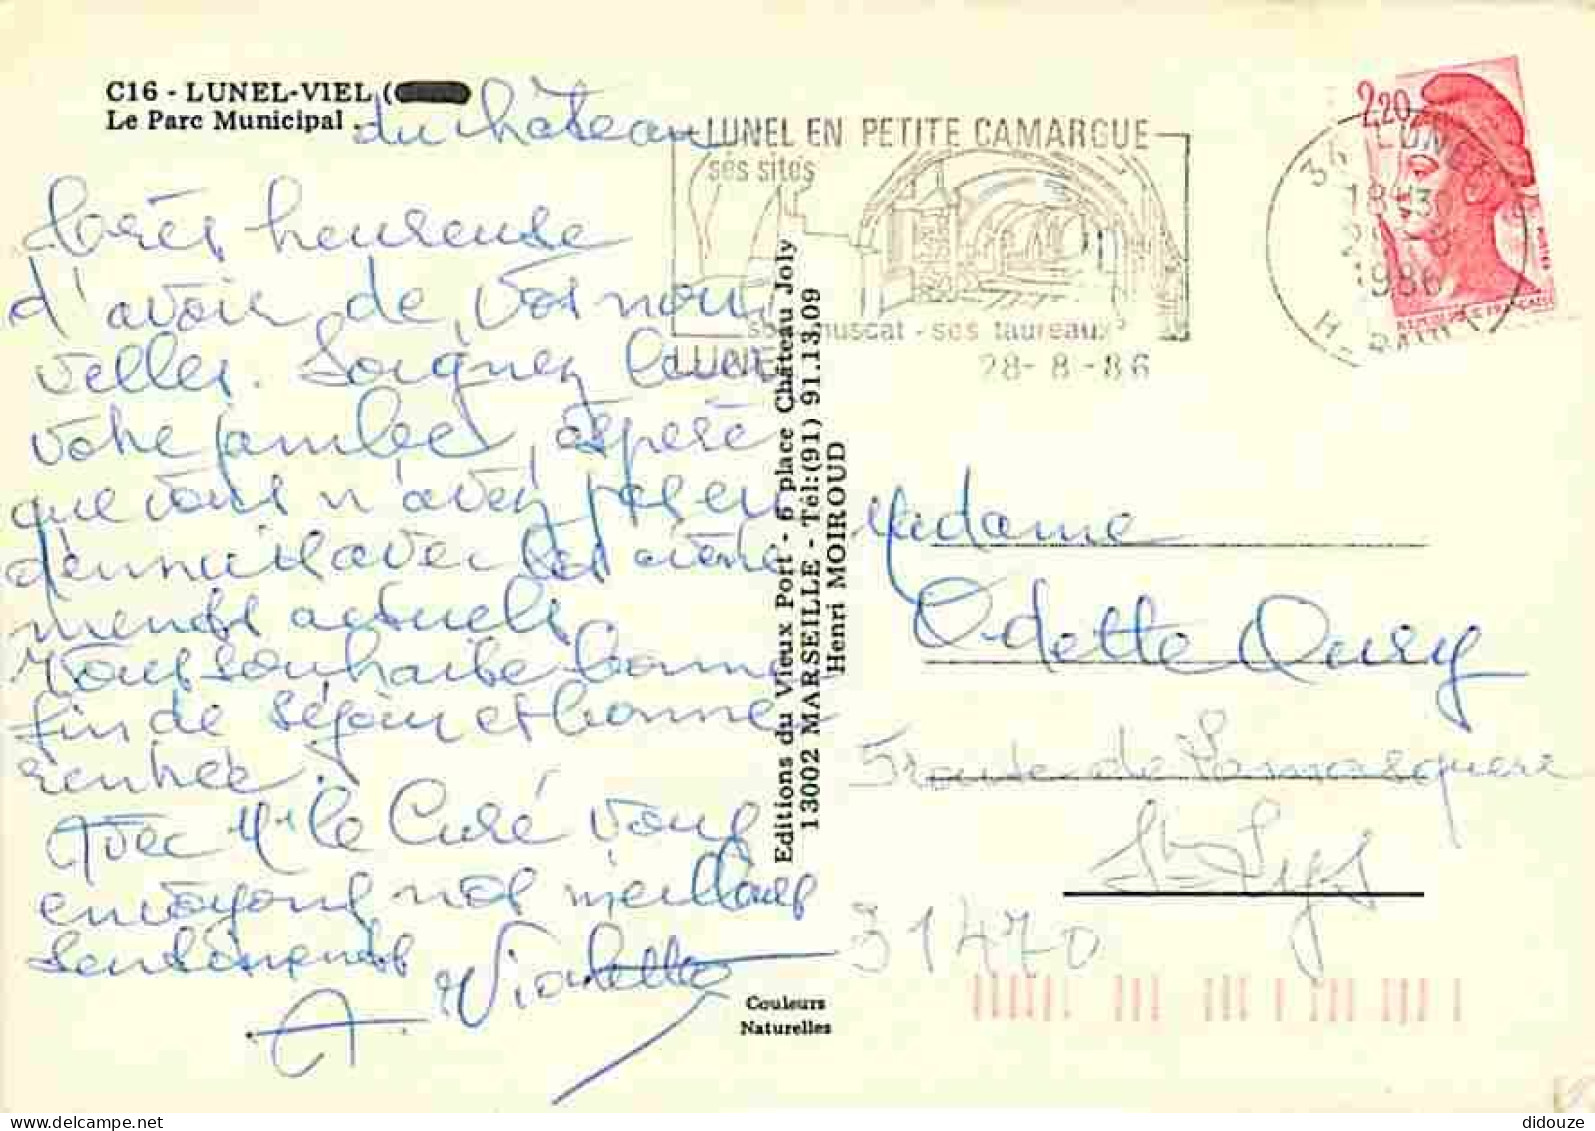 C16 - LUNEL-VIEL (
Le Parc Municipal
du château
LUNEL EN PETITE CAMARGUE
ses sites
muscat - ses taureaux
LUNEL
28-8-86
2,20
34 LUNEL
18H30
28-8
1986
HERAULT
REPUBLIQUE FRANÇAISE
POSTES
très heureuse
d'avoir de vos nou
velles. Soignez bien
votre jambe, espère
que vous n'avez pas eu
d'ennuis avec les évène
ments actuels.
Vous souhaite bonne
fin de séjour et bonne
rentrée.
Avec Mr le Curé vous
envoyons nos meilleurs
sentiments
A. Violette
Editions du Vieux Port - 6 place Château Joly
13002 MARSEILLE - Tél:(91) 91.13.09
Henri MOIROUD
Couleurs
Naturelles
Madame
Odette Oury
5 route de Lamasquère
St Lys
31470
didouze